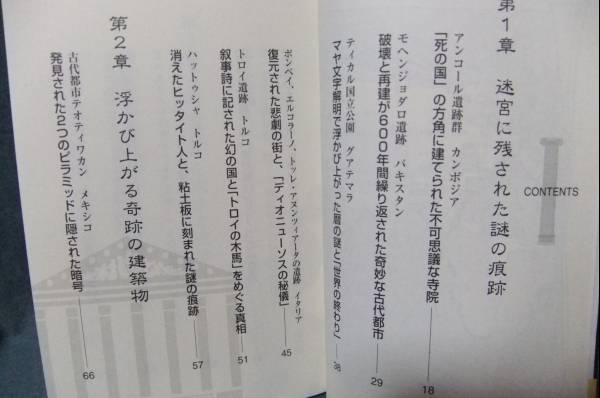 CONTENTS
第1章 迷宮に残された謎の痕跡
アンコール遺跡群 カンボジア
「死の国」の方角に建てられた不可思議な寺院 18
モヘンジョダロ遺跡 パキスタン
破壊と再建が600年間繰り返された奇妙な古代都市 29
ティカル国立公園 グアテマラ
マヤ文字解明で浮かび上がった暦の謎と「世界の終わり」 38
ポンペイ、エルコラーノ、トッレ・アヌンツィアータの遺跡 イタリア
復元された悲劇の街と、「ディオニューソスの秘儀」 45
トロイ遺跡 トルコ
叙事詩に記された幻の国と「トロイの木馬」をめぐる真相 51
ハットゥシャ トルコ
消えたヒッタイト人と、粘土板に刻まれた謎の痕跡 57
第2章 浮かび上がる奇跡の建築物
古代都市テオティワカン メキシコ
発見された2つのピラミッドに隠された暗号 66